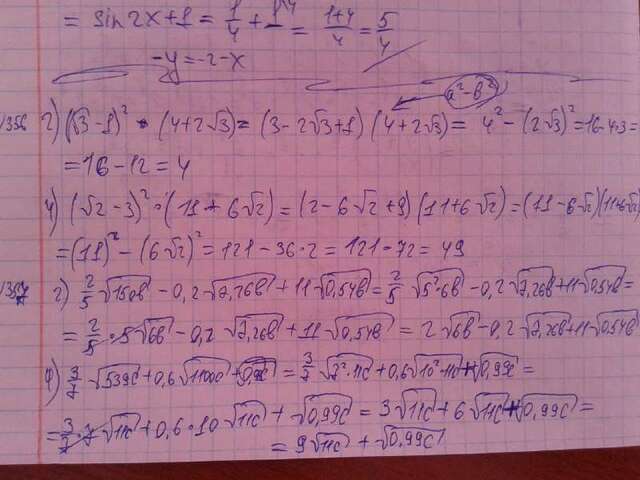 = sin2x+1 = 1/4 + 1^4 = (1+4)/4 = 5/4
-y=-2-x
a²-b²
1356 2) (√3-1)² · (4+2√3) = (3-2√3+1) (4+2√3) = 4² - (2√3)² = 16-4·3 =
= 16-12 = 4
4) (√2-3)² · (11+6√2) = (2-6√2+9) (11+6√2) = (11-6√2)(11+6√2)
= (11)² - (6√2)² = 121-36·2 = 121-72 = 49
1357 2) 2/5 √150b - 0,2√7,26b + 11√0,54b = 2/5 √5²·6b - 0,2√7,26b + 11√0,54b =
= 2/5 · 5√6b - 0,2√7,26b + 11√0,54b = 2√6b - 0,2√7,26b + 11√0,54b
4) 3/7 √539c + 0,6√1100c + = 3/7 √7²·11c + 0,6√10²·11c + √0,99c =
= 3/7 · 7√11c + 0,6·10√11c + √0,99c = 3√11c + 6√11c + √0,99c =
= 9√11c + √0,99c